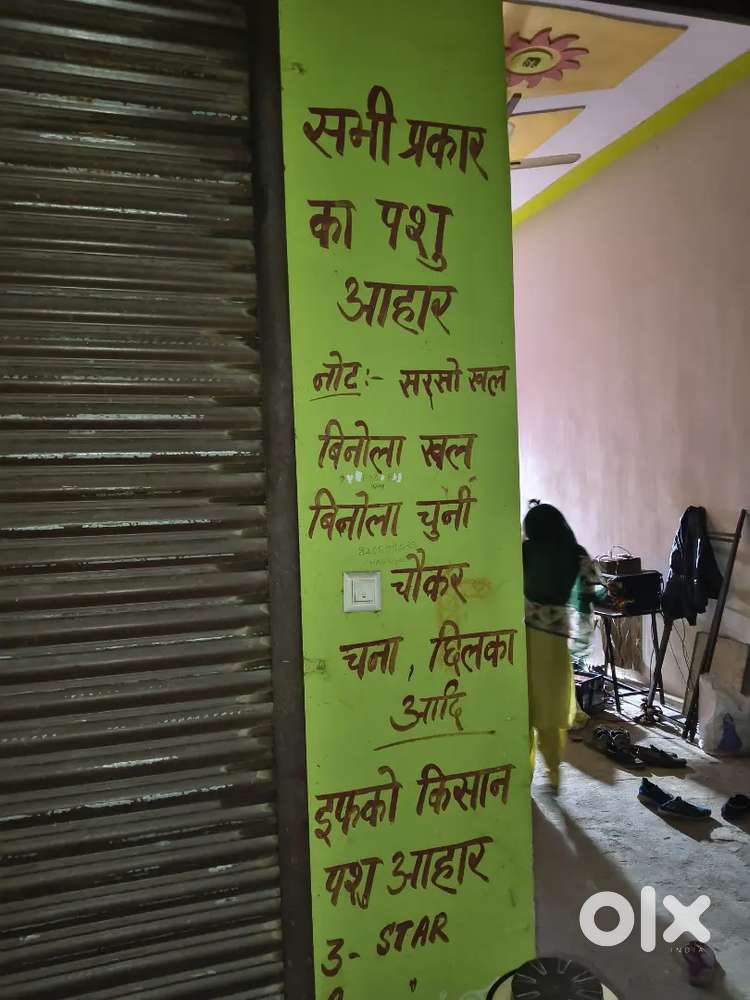 सभी प्रकार
का पशु
आहार
नोट:- सरसो खल
बिनोला खल
बिनोला चुनी
चौकर
चना, छिलका
आदि
इफको किसान
पशु आहार
3- STAR
olx
INDIA